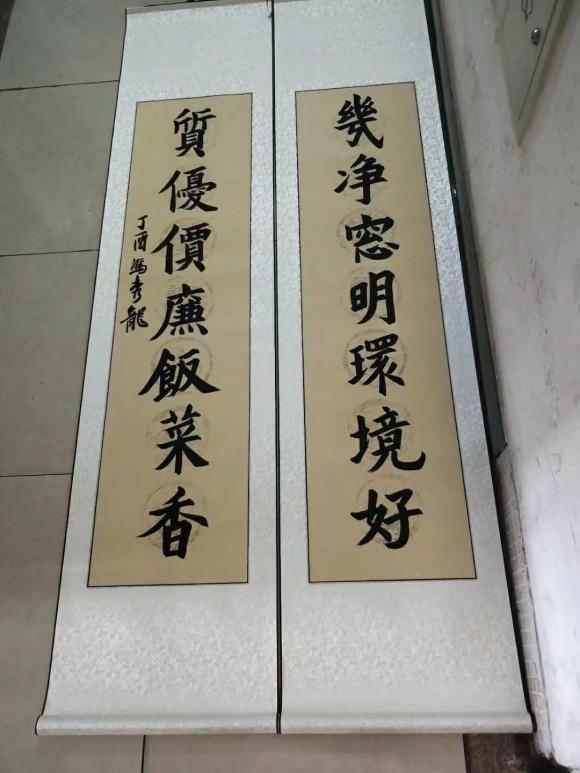 幾净窓明環境好
質優價廉飯菜香
丁酉馮秀龍